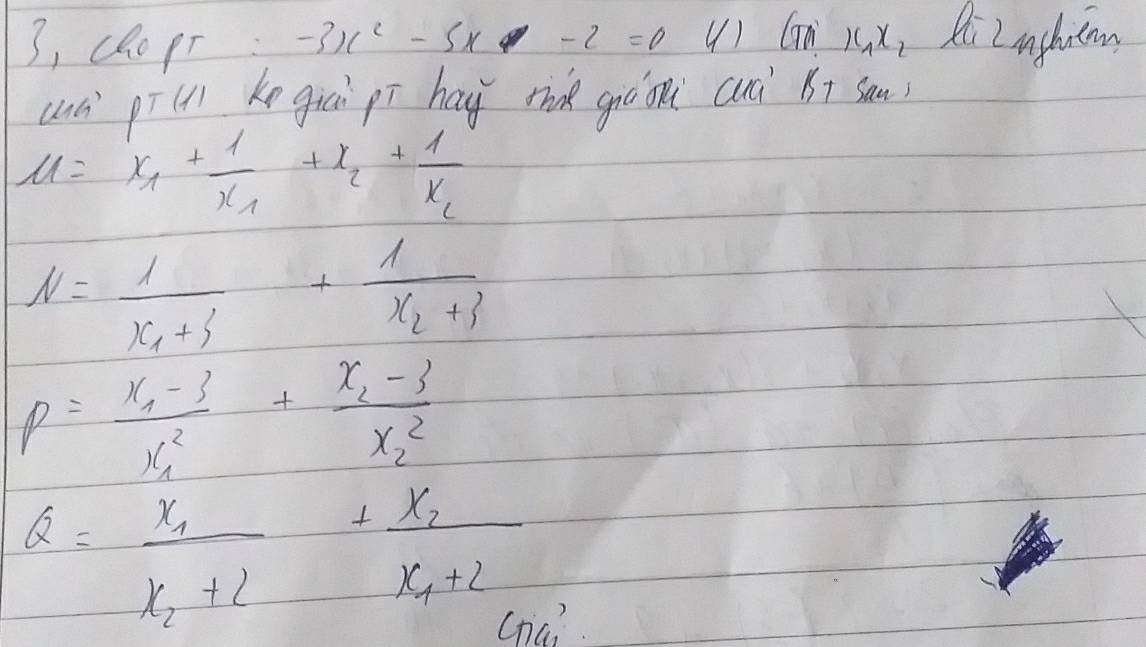 3, Cho pT : -3x² - 5x - 2 = 0 (1) Gọi x₁x₂ là 2 nghiệm
của pT (1) ko giải pT hãy tính giá trị của BT sau:
M = x₁ + 1/x₁ + x₂ + 1/x₂
N = 1/(x₁ + 3) + 1/(x₂ + 3)
P = (x₁ - 3)/x₁² + (x₂ - 3)/x₂²
Q = x₁/(x₂ + 2) + x₂/(x₁ + 2)
Giải.